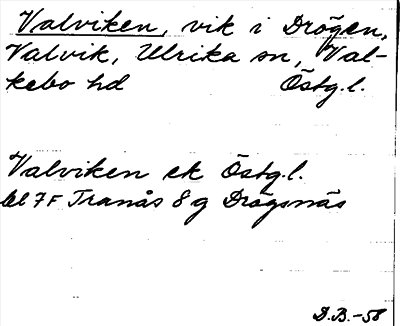 Valviken, vik i Drögen,
Valvik, Ulrika sn, Val-
kebo hd Östg.l.
Valviken ek Östg.l.
bl 7F Tranås 8 g Drögsnäs
D.B.-58